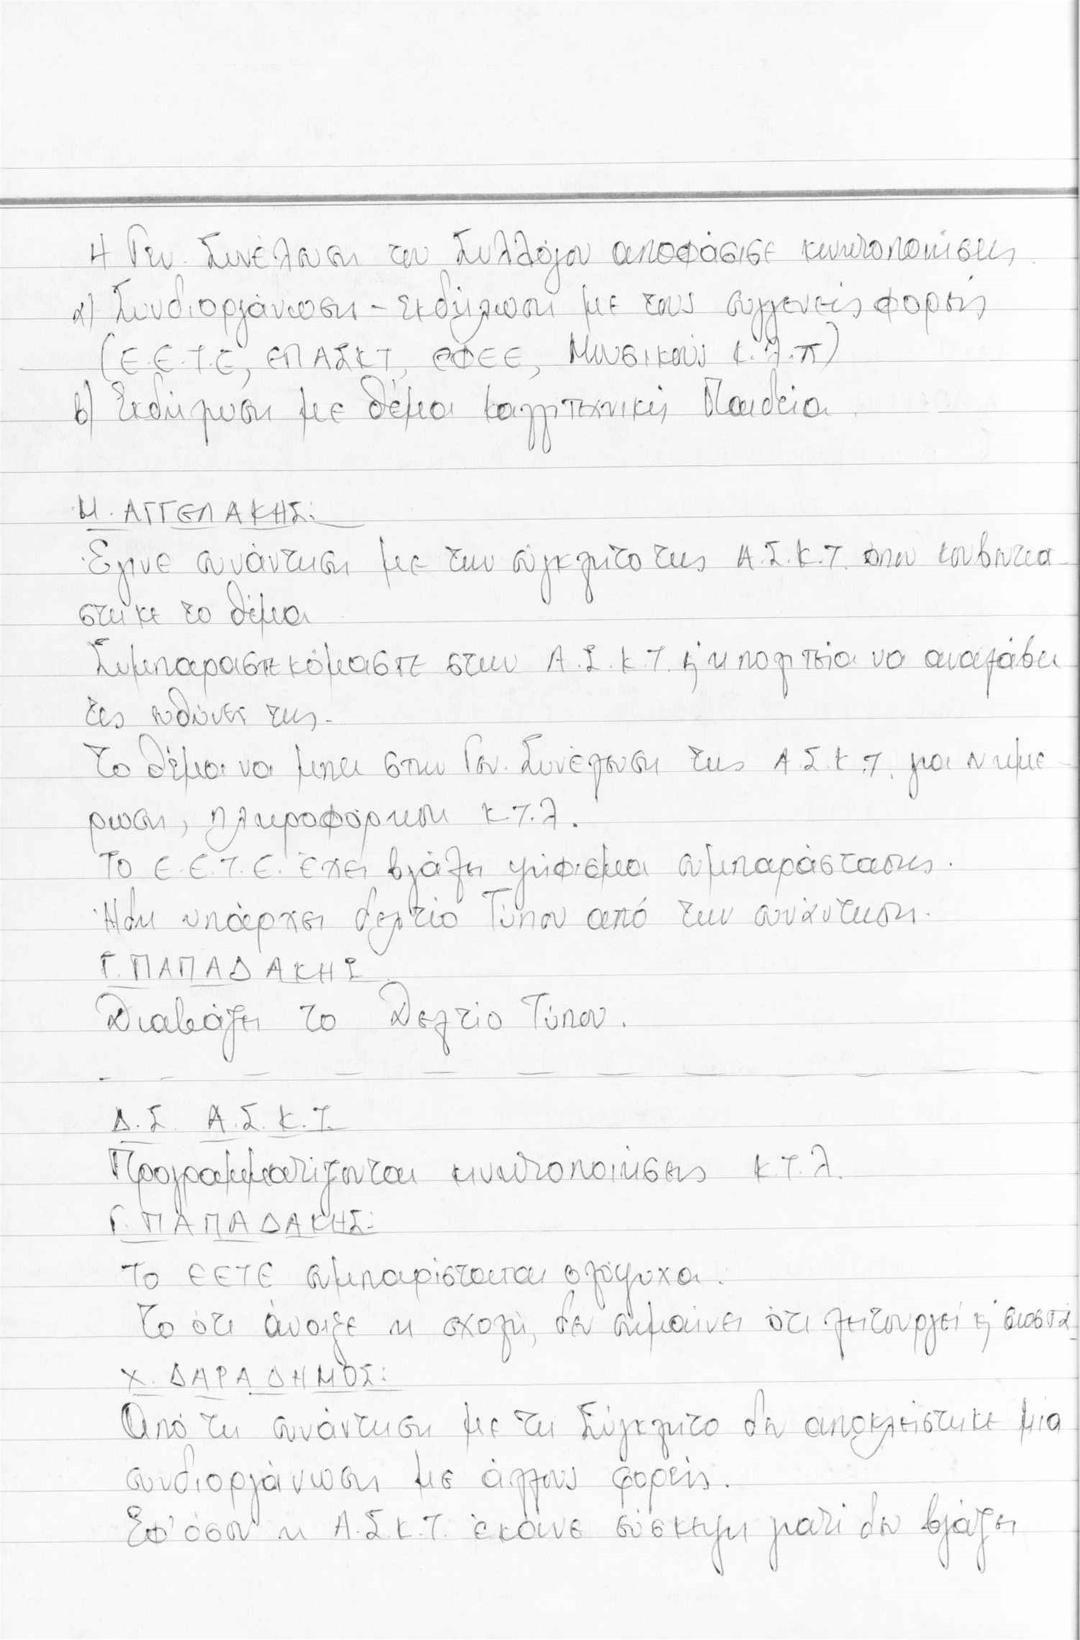 Η Γεν. Συνέλευση του Συλλόγου αποφάσισε κινητοποιήσεις
α) Συνδιοργάνωση - Εκδήλωση με τους συγγενείς φορείς
(Ε.Ε.Τ.Ε, ΕΠΑΣΚΤ, ΕΦΕΕ, Μουσικούς κ.λ.π)
β) Εκδήλωση με θέμα Καλλιτεχνική Παιδεία
Μ. ΑΓΓΕΛΑΚΗΣ:
Έγινε συνάντηση με την σύγκλητο της Α.Σ.Κ.Τ. όπου κουβεντιά-
στηκε το θέμα
Συμπαραστεκόμαστε στην Α.Σ.Κ.Τ κ' η πολιτεία να αναλάβει
τις ευθύνες της.-
Το θέμα να μπει στην Γεν. Συνέλευση της Α.Σ.Κ.Τ. για ενημέ-
ρωση, πληροφόρηση κ.τ.λ.
Το Ε.Ε.Τ.Ε. έχει βγάλει ψήφισμα συμπαράστασης.
Ήδη υπάρχει δελτίο Τύπου από την συνάντηση.
Γ. ΠΑΠΑΔΑΚΗΣ
Διαβάζει το Δελτίο Τύπου.
Δ.Σ Α.Σ.Κ.Τ.
Προγραμματίζονται κινητοποιήσεις κ.τ.λ.
Γ. ΠΑΠΑΔΑΚΗΣ:
Το ΕΕΤΕ συμπαρίσταται ολόψυχα.
Το ότι άνοιξε η σχολή, δεν σημαίνει ότι λειτουργεί κ' σωστά
Χ. ΔΑΡΑΔΗΜΟΣ:
Από τη συνάντηση με τη Σύγκλητο δεν αποκλείστηκε μια
συνδιοργάνωση με άλλους φορείς.
Εφ' όσον η Α.Σ.Κ.Τ. έκανε σύσκεψη γιατί δεν βγάζει